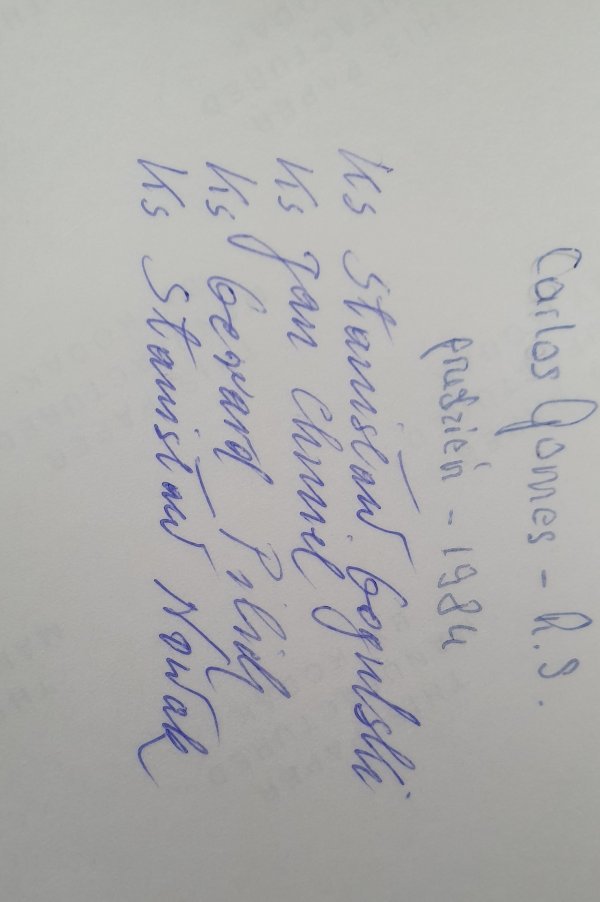 Carlos Gomes - R.S.
grudzień - 1984
Ks Stanisław Gogulski
Ks Jan Chmiel
Ks Gerard Pilich
Ks Stanisław Nowak